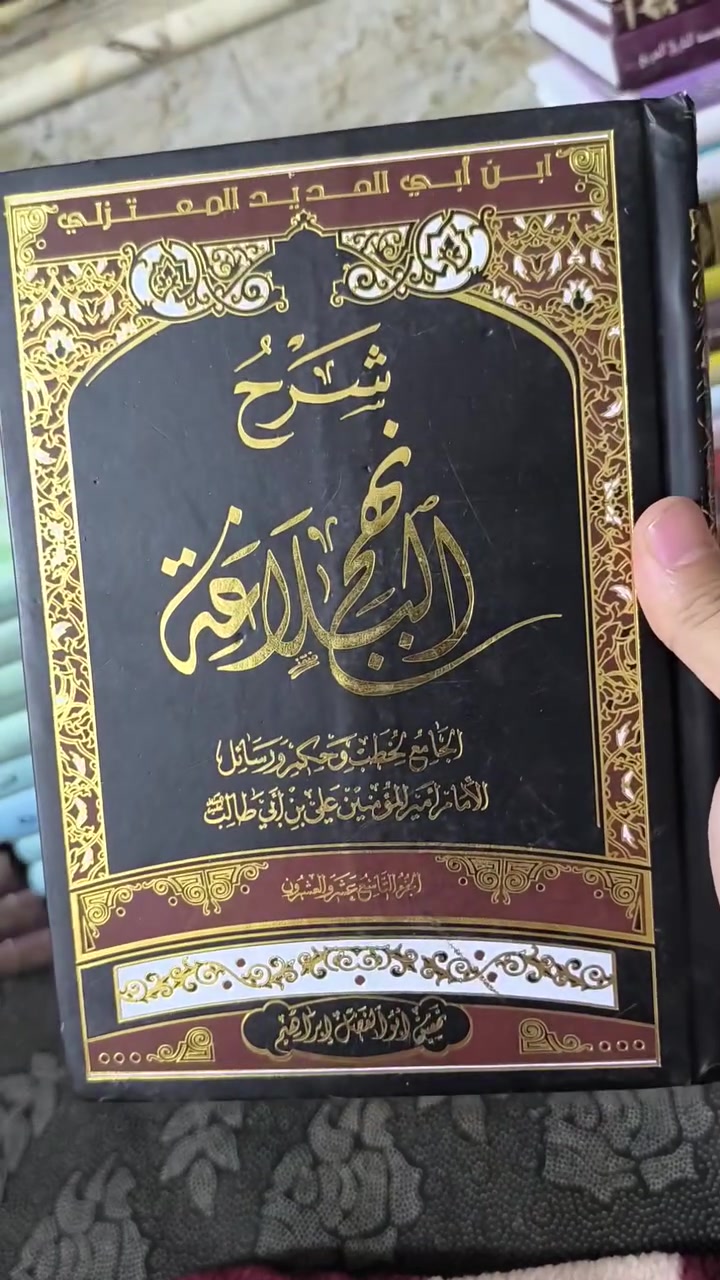 ابن أبي الحديد المعتزلي
شَرْحُ
نهج
البَلَاغَة
الجَامِعُ لِخُطَبِ وَحِكَمِ وَرَسَائِل
الإمَام أمير المؤمنين عَلي بن أبي طالب
الجزء التاسع عشر والعشرون
تحقيق أبو الفضل إبراهيم